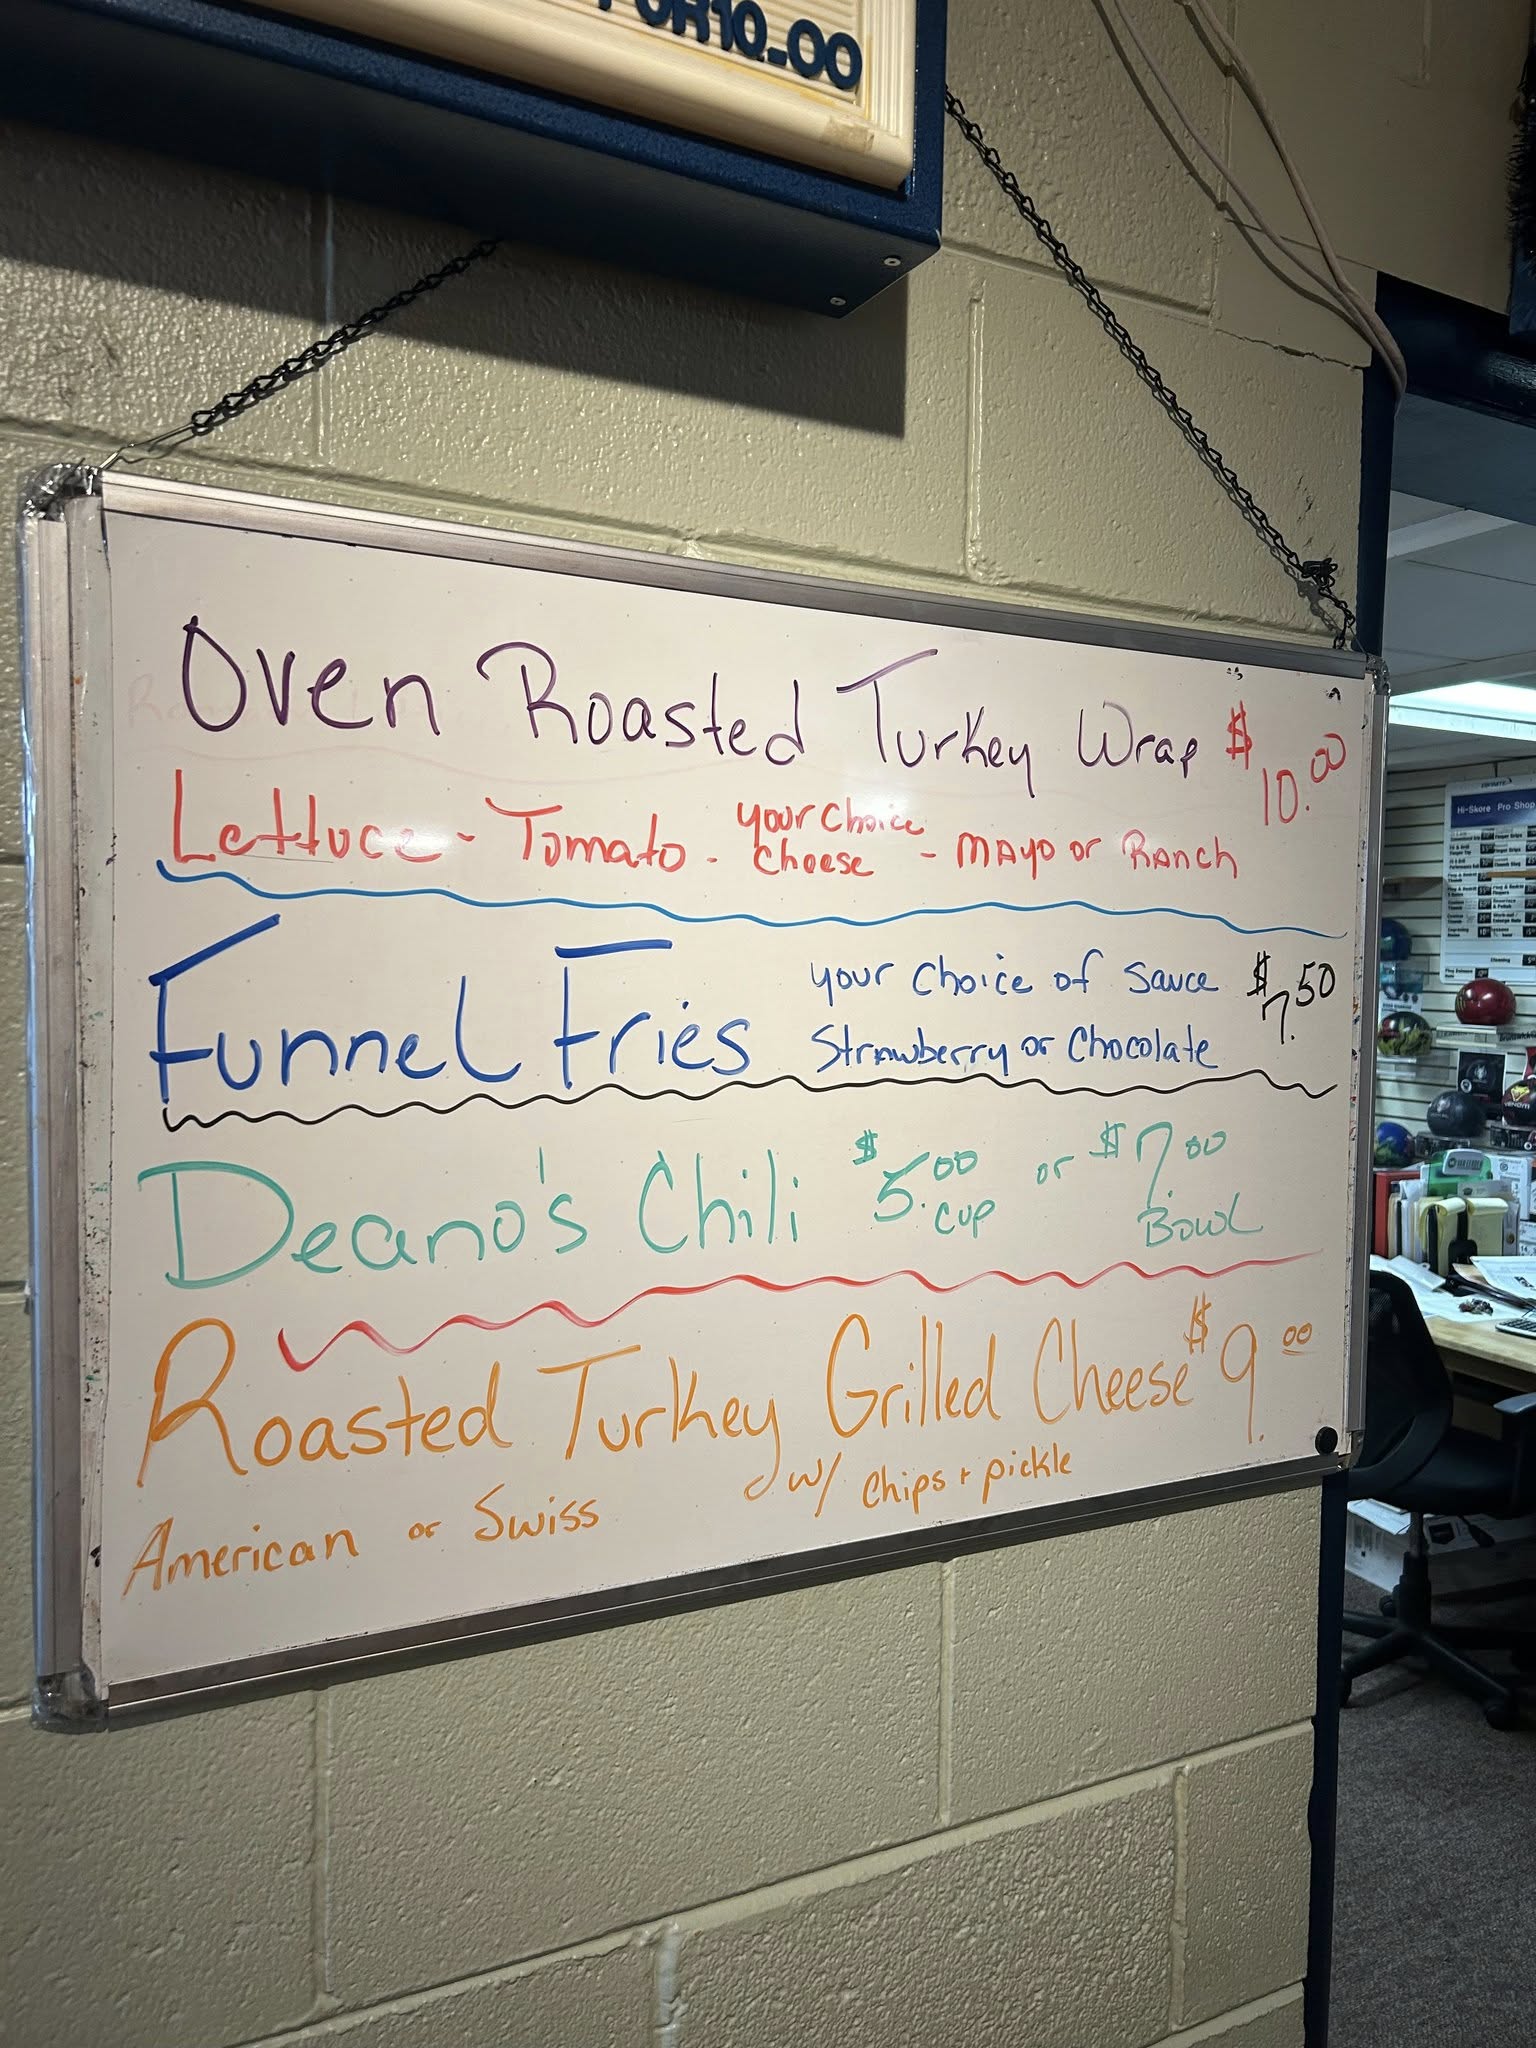 FOR10.00
Oven Roasted Turkey Wrap $10.00
Lettuce - Tomato - your choice cheese - MAYO or RANCH
Funnel Fries
your choice of sauce $7.50
Strawberry or Chocolate
Deano's Chili $5.00 cup or $7.00 Bowl
Roasted Turkey Grilled Cheese $9.00
American or Swiss
w/ chips + pickle
Hi-Skore Pro Shop